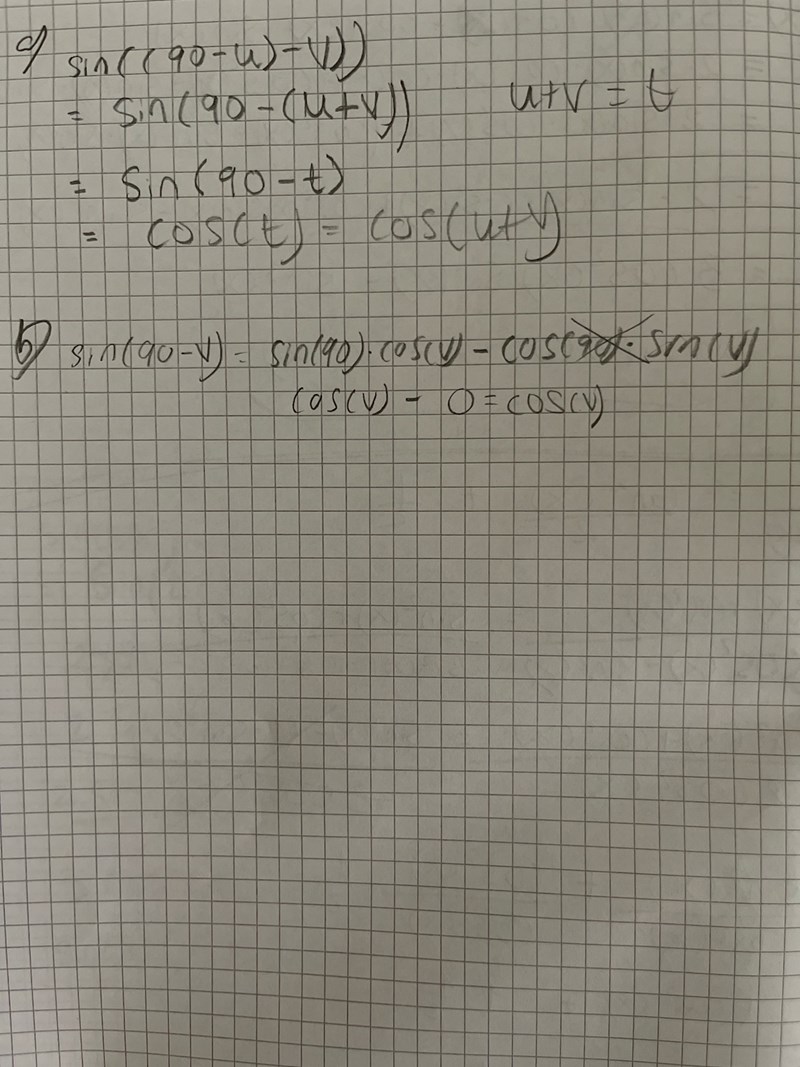 sin((90-u)-v))
= sin(90-(u+v)) u+v = t
= sin(90-t)
= cos(t) = cos(u+v)
sin(90-v) = sin(90)·cos(v) - cos(90)·sin(v)
cos(v) - 0 = cos(v)